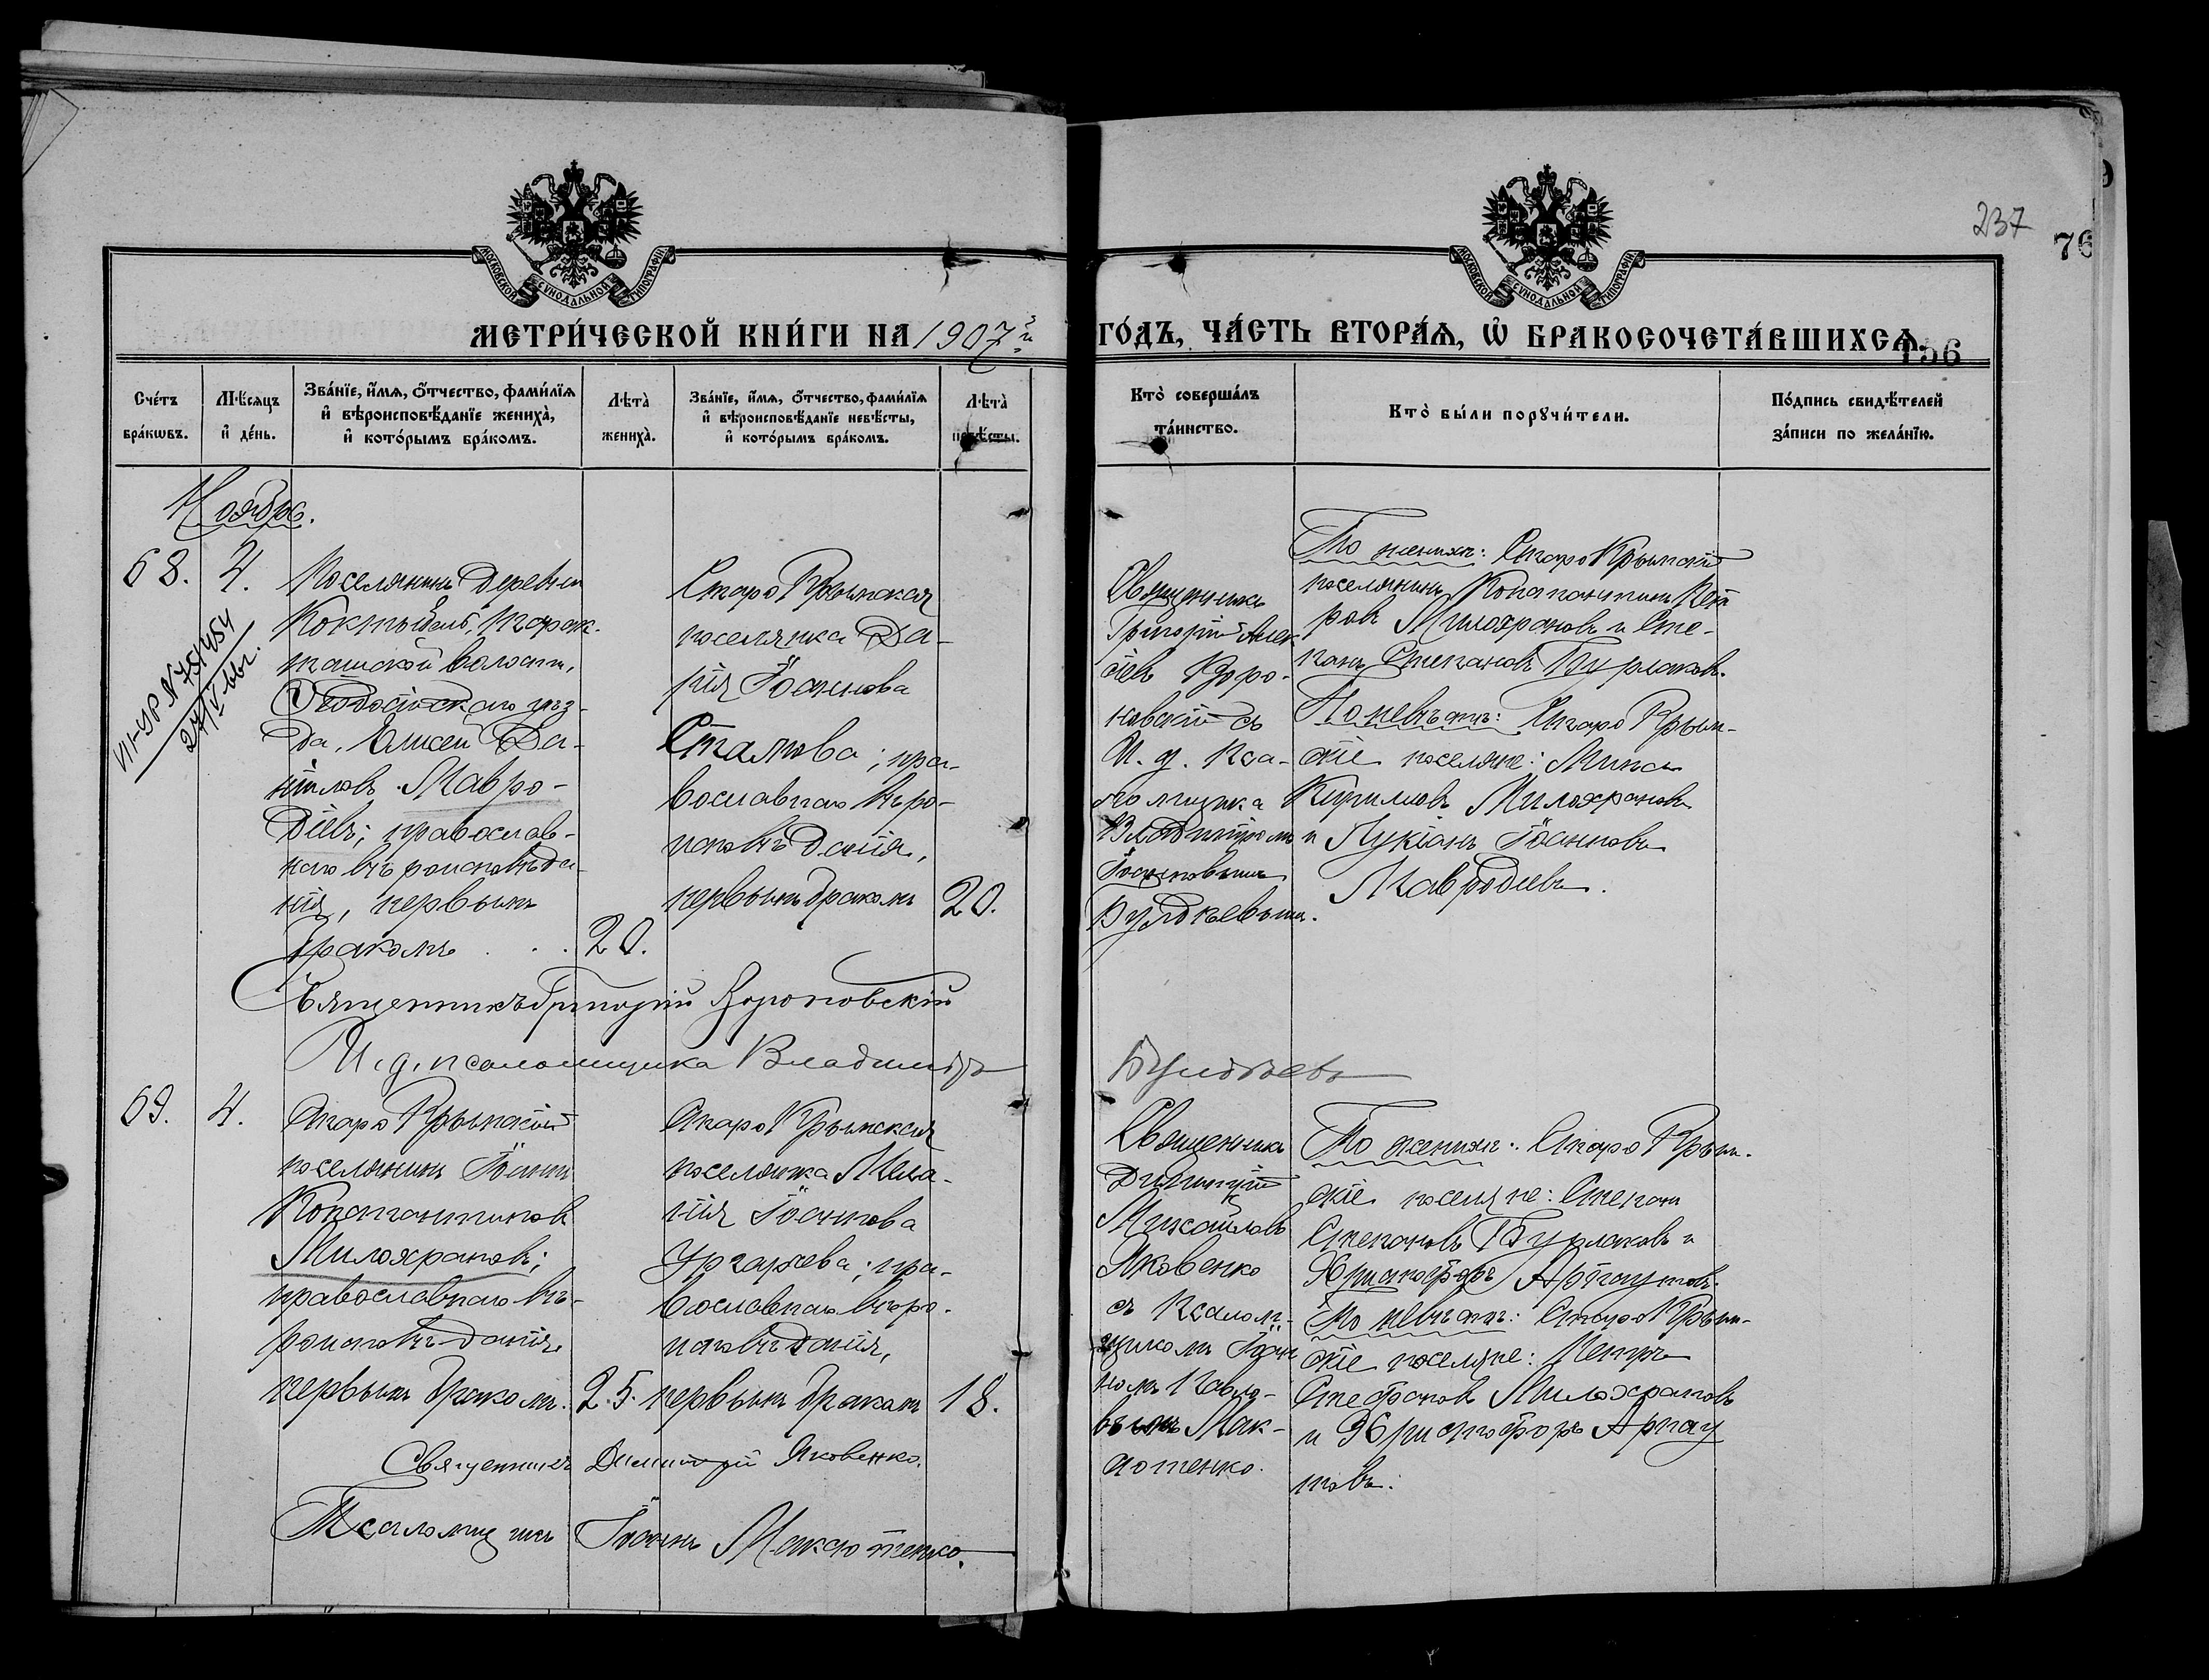 237
76
МОСКОВСКОЙ СѴНОДАЛЬНОЙ ТИПОГРАФІИ
МОСКОВСКОЙ СѴНОДАЛЬНОЙ ТИПОГРАФІИ
МЕТРИ́ЧЕСКОЙ КНИ́ГИ НА 1907й ГО́ДЪ, ЧА́СТЬ ВТОРА́Ѧ, Ѽ БРАКОСОЧЕТА́ВШИХСѦ.
156
Сче́тъ
бра́кѡвъ.
Мѣ́сяцъ
и҆ де́нь.
Зва́нїе, и҆́мѧ, ѻ҆́тчество, фами́лїѧ
и҆ вѣроисповѣ́данїе жениха̀,
и҆ кото́рымъ бра́комъ.
Лѣта̀
жениха̀.
Зва́нїе, и҆́мѧ, ѻ҆́тчество, фами́лїѧ
и҆ вѣроисповѣ́данїе невѣ́сты,
и҆ кото́рымъ бра́комъ.
Лѣта̀
невѣ́сты.
Кто̀ соверша́лъ
та́инство.
Кто̀ бы́ли порꙋчи́тели.
По́дпись свидѣ́телей
за́писи по жела́нїю.
Ноябрь.
68.
4.
Поселянинъ деревни
Коктебель,
ташской волости,
Ѳеодосійскаго уѣз-
да, Елисей Да-
ніиловъ Мавро-
діевъ; православ-
наго вѣроисповѣда-
нія, первымъ
бракомъ . . .
20.
Старо Крымская
поселянка Да-
рія Іоаннова
Сталиова; пра-
вославнаго вѣро-
исповѣданія,
первымъ бракомъ
20.
Священникъ
Григорій Алек
сѣевъ Коро-
новскій съ
И. д. Пса-
ломщика
Владиміромъ
Іоанновымъ
По женихѣ: Старо Крымскій
поселянинъ Константинъ Пет
ровъ Милохрановъ и Сте-
панъ Степановъ Бурлаковъ.
По невѣстѣ: Старо Крым-
скіе поселяне: Мина
Кирилловъ Милохрановъ
и Лукіанъ Іоанновъ
Мавродіевъ.
Священникъ Григорій Короновскій
И. д. псаломщика Владиміръ
69.
4.
Старо Крымскій
поселянинъ Іоаннъ
Константиновъ
Милохрановъ;
православнаго вѣ-
роисповѣданія,
первымъ бракомъ.
25.
Старо Крымская
поселянка Мела-
нія Іоаннова
Ургарчева; пра-
вославнаго вѣро-
исповѣданія,
первымъ бракомъ
18.
Священникъ
Димитрій
Михайловъ
Яковенко
съ Псалом-
щикомъ Іоан
номъ Павло-
вымъ Мак-
сютенко.
По женихѣ: Старо Крым-
скіе поселяне: Степанъ
Степановъ Бурлаковъ и
Христофоръ Арнаутовъ.
По невѣстѣ: Старо Крым-
скіе поселяне: Петръ
Стефановъ Милохрановъ
и Христофоръ Арнау
товъ.
Священникъ Димитрій Яковенко.
Псаломщикъ Іоаннъ Максютенко.